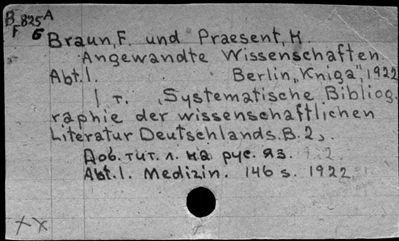 B 825 A
F 6
Braun, F. und Praesent, H.
Angewandte Wissenschaften.
Abt. I. Berlin, "Kniga", 1922
1 т. „Systematische Bibliog-
raphie der wissenschaftlichen
Literatur Deutschlands. B. 2."
Доб. тит. л. на рус. яз.
Abt. I. Medizin. 146 s. 1922.